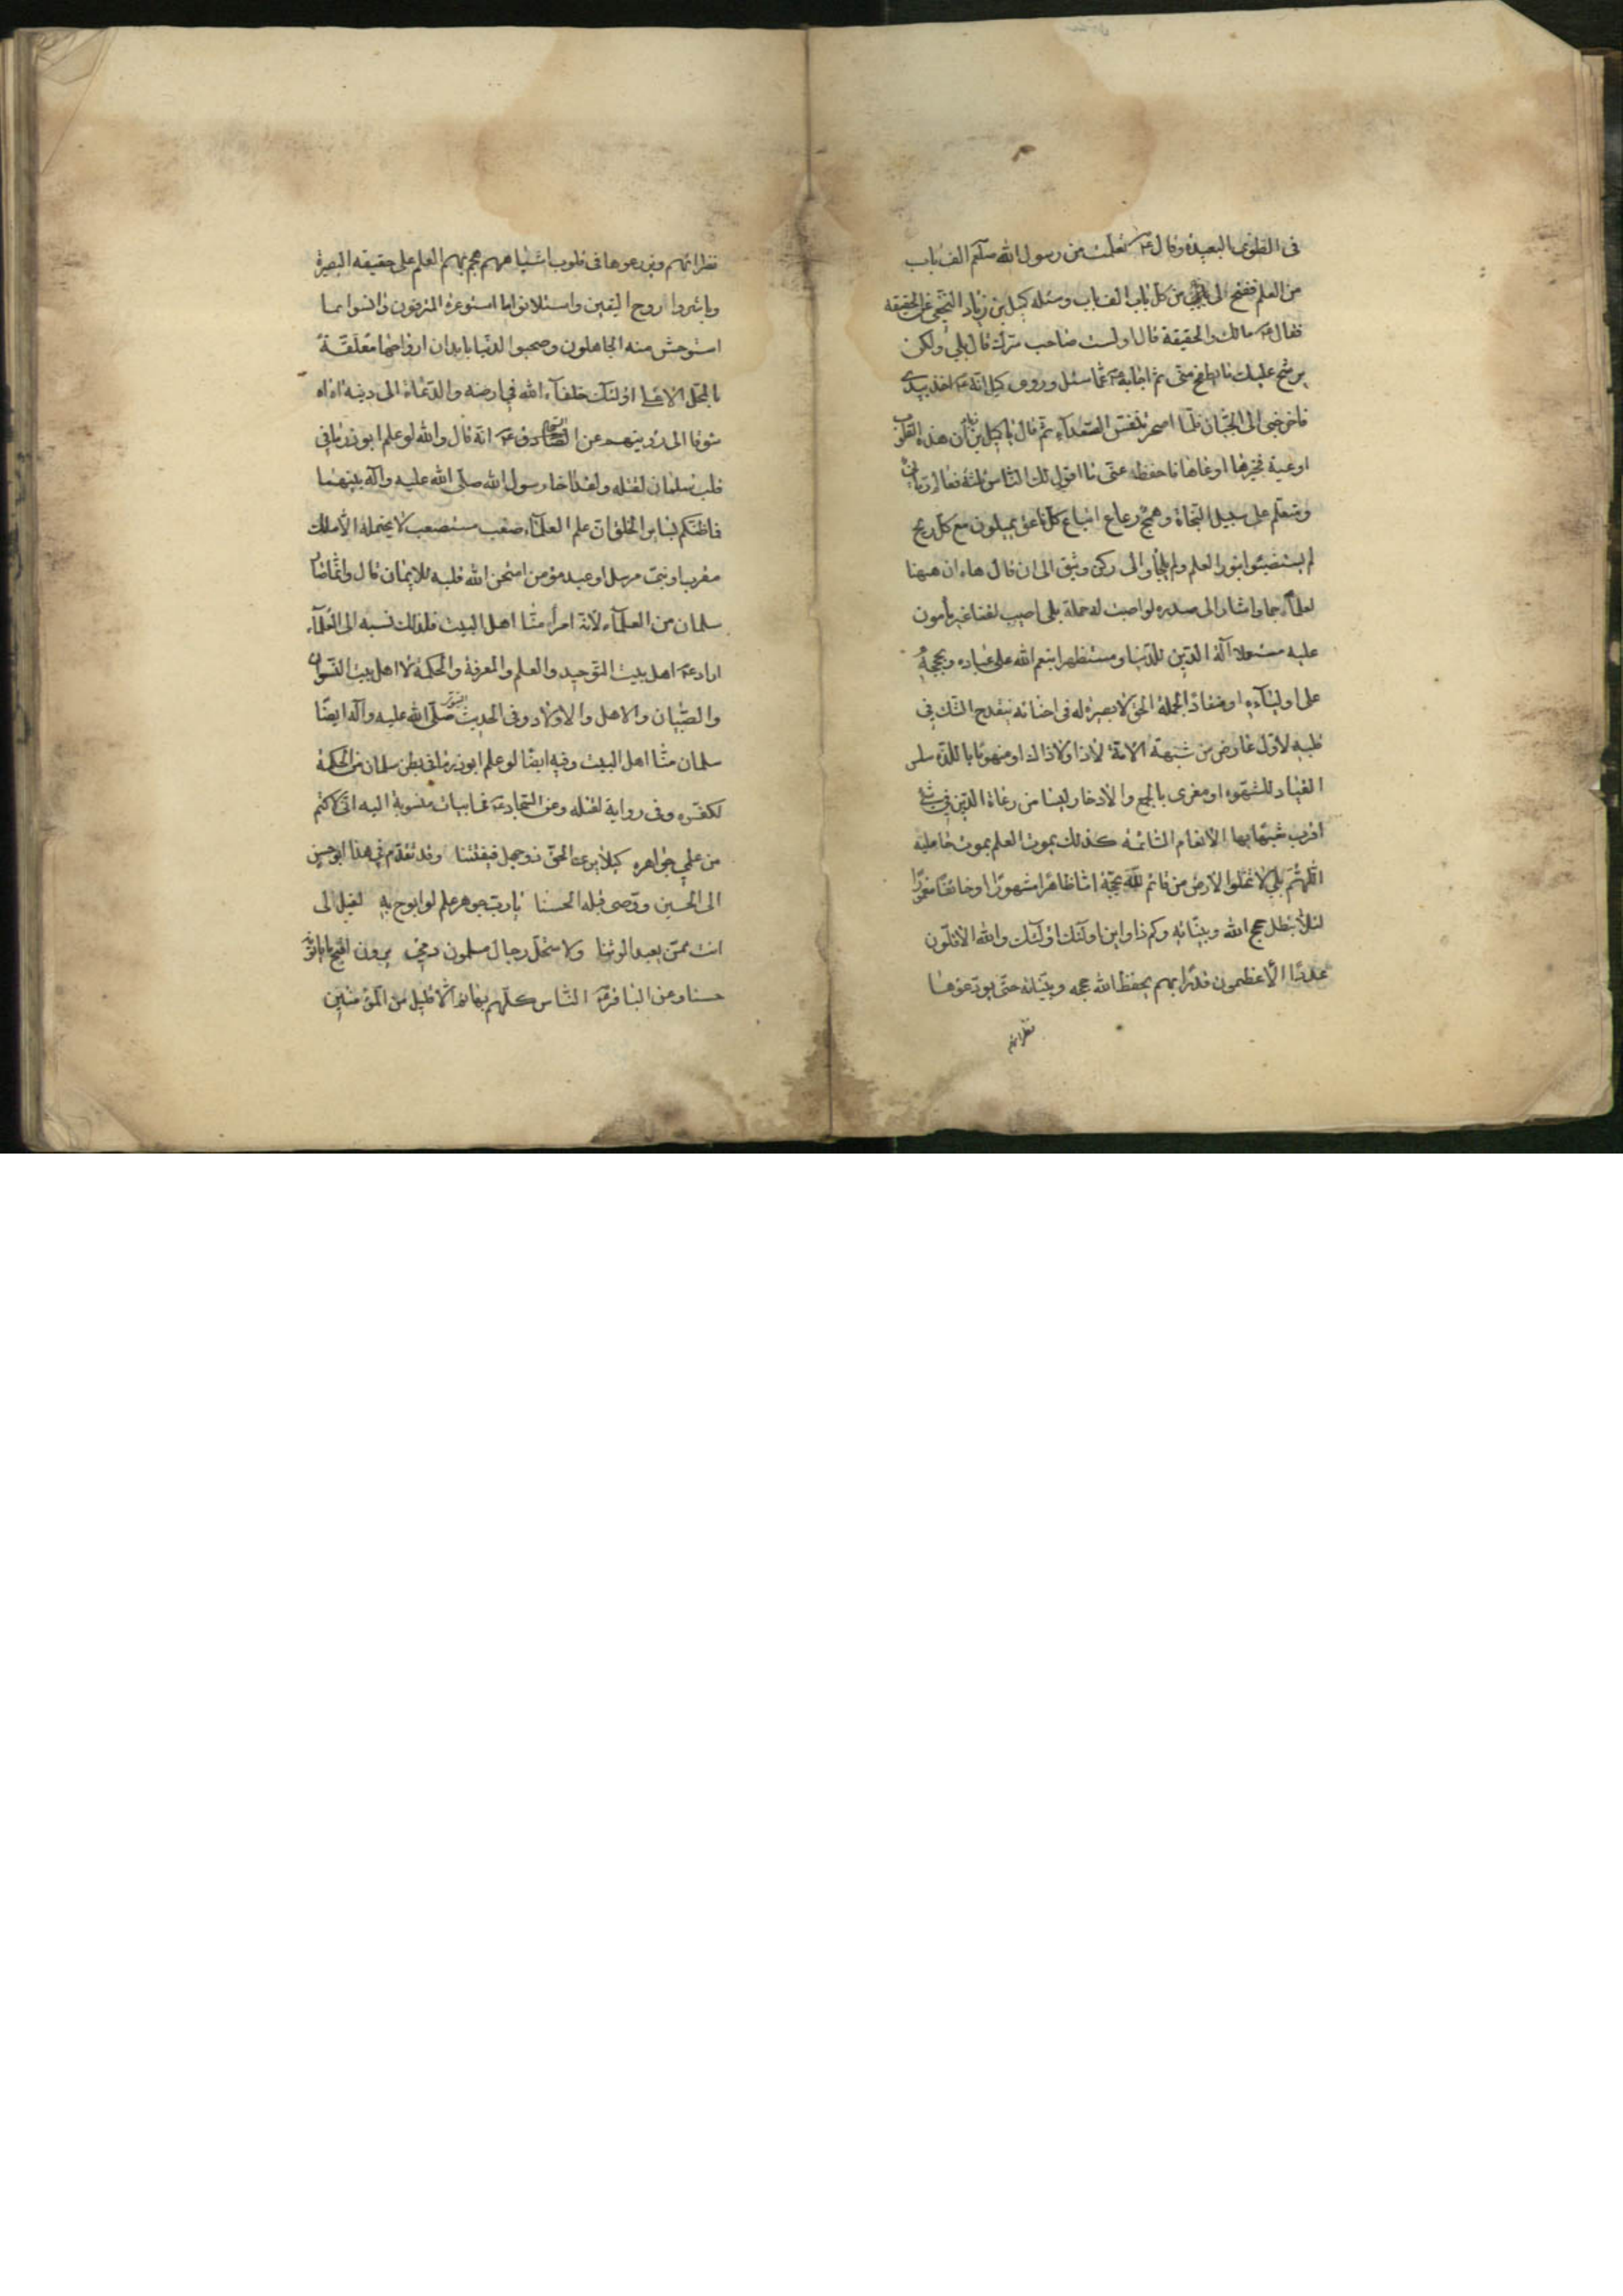 فى الطوى البعيدة وقال ع تعلمت من رسول الله صلعم الف باب
من العلم ففتح لى من كل باب الف باب وسئله كميل بن زياد النخعى عن الحقيقة
فقال ع مالك والحقيقة قال اولست صاحب سرك قال بلى ولكن
يرشح عليك ما يطفح منى ثم اجابه ع عما سئل وروى كميل انه ع اخذ بيدى
فاخرجنى الى الجبان فلما اصحر تنفس الصعداء ثم قال يا كميل بن زياد ان هذه القلوب
اوعية فخيرها اوعاها فاحفظ عنى ما اقول لك الناس ثلثة فعالم ربانى
ومتعلم على سبيل النجاة وهمج رعاع اتباع كل ناعق يميلون مع كل ريح
لم يستضيئوا بنور العلم ولم يلجأوا الى ركن وثيق الى ان قال هاء ان ههنا
لعلماء جما واشار الى صدره لو اصبت له حملة بلى اصيب لقنا غير مأمون
عليه مستعملا آلة الدين للدنيا ومستظهرا بنعم الله على عباده وبحججه
على اوليائه او منقادا لحملة الحق لا بصيرة له فى احنائه ينقدح الشك فى
قلبه لاول عارض من شبهة الا لا ذا ولا ذاك او منهوما باللذة سلس
القياد للشهوة او مغرى بالجمع والادخار ليسا من رعاة الدين فى شئ
اقرب شبها بهما الانعام السائمة كذلك يموت العلم بموت حامليه
اللهم بلى لا تخلوا الارض من قائم لله بحجة اما ظاهرا مشهورا او خائفا مغمورا
لئلا تبطل حجج الله وبيناته وكم ذا واين اولئك اولئك والله الاقلون
عددا الاعظمون قدرا بهم يحفظ الله حججه وبيناته حتى يودعوها
نظرائهم
نظرائهم ويزرعوها فى قلوب اشباههم هجم بهم العلم على حقيقه البصيرة
وباشروا روح اليقين واستلانوا ما استوعره المترفون وانسوا بما
استوحش منه الجاهلون وصحبوا الدنيا بابدان ارواحها معلقة
بالمحل الاعلى اولئك خلفاء الله فى ارضه والدعاة الى دينه اه اه
شوقا الى رؤيتهم عن ع انه قال والله لو علم ابوذر ما فى
قلب سلمان لقتله ولقد اخا رسول الله صلى الله عليه وآله بينهما
فما ظنكم بسائر الخلق ان علم العلماء صعب مستصعب لا يحتمله الا ملك
مقرب او نبى مرسل او عبد مؤمن امتحن الله قلبه للايمان قال وانما صار
سلمان من العلماء لانه امرأ منا اهل البيت فلذلك نسبه الى العلماء
اراد ع اهل بيت التوحيد والعلم والمعرفة والحكمة لا اهل بيت النسوان
والصبيان والاهل والاولاد وفى الحديث النبوى صلى الله عليه وآله ايضا
سلمان منا اهل البيت وفيه ايضا لو علم ابوذر ما فى بطن سلمان من الحكمة
لكفره وفى رواية لقتله وعن السجاد ع فى ابيات منسوبة اليه انى لاكتم
من علمى جواهره كيلا يرى الحق ذو جهل فيفتننا وقد تقدم فى هذا ابو حسن
الى الحسين ووصى قبله الحسنا يا رب جوهر علم لو ابوح به لقيل لى
انت ممن يعبد الوثنا ولا ستحل رجال مسلمون دمى يرون اقبح ما يأتونه
حسنا وعن الباقر ع الناس كلهم بهائم الا قليل من المؤمنين